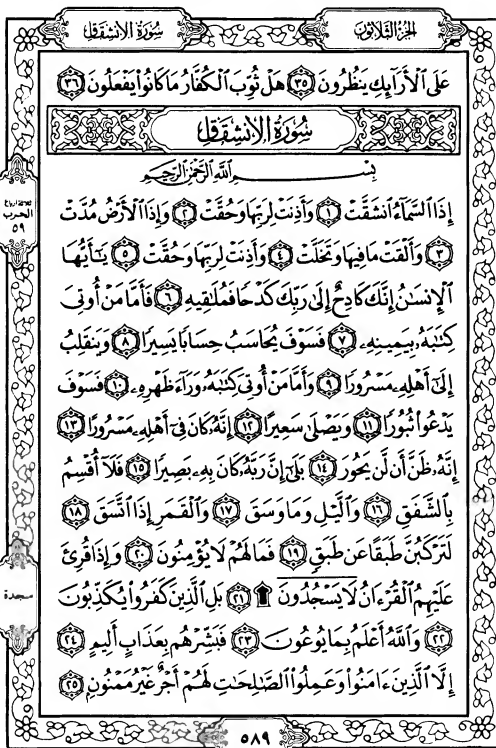 الجزء الثلاثون
سورة الانشقاق
عَلَى ٱلْأَرَآئِكِ يَنظُرُونَ ٣٥ هَلْ ثُوِّبَ ٱلْكُفَّارُ مَا كَانُوا۟ يَفْعَلُونَ ٣٦
سورة الانشقاق
بِسْمِ ٱللَّهِ ٱلرَّحْمَٰنِ ٱلرَّحِيمِ
إِذَا ٱلسَّمَآءُ ٱنشَقَّتْ ١ وَأَذِنَتْ لِرَبِّهَا وَحُقَّتْ ٢ وَإِذَا ٱلْأَرْضُ مُدَّتْ
٣ وَأَلْقَتْ مَا فِيهَا وَتَخَلَّتْ ٤ وَأَذِنَتْ لِرَبِّهَا وَحُقَّتْ ٥ يَٰٓأَيُّهَا
ٱلْإِنسَٰنُ إِنَّكَ كَادِحٌ إِلَىٰ رَبِّكَ كَدْحًا فَمُلَٰقِيهِ ٦ فَأَمَّا مَنْ أُوتِىَ
كِتَٰبَهُۥ بِيَمِينِهِۦ ٧ فَسَوْفَ يُحَاسَبُ حِسَابًا يَسِيرًا ٨ وَيَنقَلِبُ
إِلَىٰٓ أَهْلِهِۦ مَسْرُورًا ٩ وَأَمَّا مَنْ أُوتِىَ كِتَٰبَهُۥ وَرَآءَ ظَهْرِهِۦ ١٠ فَسَوْفَ
يَدْعُوا۟ ثُبُورًا ١١ وَيَصْلَىٰ سَعِيرًا ١٢ إِنَّهُۥ كَانَ فِىٓ أَهْلِهِۦ مَسْرُورًا ١٣
إِنَّهُۥ ظَنَّ أَن لَّن يَحُورَ ١٤ بَلَىٰٓ إِنَّ رَبَّهُۥ كَانَ بِهِۦ بَصِيرًا ١٥ فَلَآ أُقْسِمُ
بِٱلشَّفَقِ ١٦ وَٱلَّيْلِ وَمَا وَسَقَ ١٧ وَٱلْقَمَرِ إِذَا ٱتَّسَقَ ١٨
لَتَرْكَبُنَّ طَبَقًا عَن طَبَقٍ ١٩ فَمَا لَهُمْ لَا يُؤْمِنُونَ ٢٠ وَإِذَا قُرِئَ
عَلَيْهِمُ ٱلْقُرْءَانُ لَا يَسْجُدُونَ ۩ ٢١ بَلِ ٱلَّذِينَ كَفَرُوا۟ يُكَذِّبُونَ
٢٢ وَٱللَّهُ أَعْلَمُ بِمَا يُوعُونَ ٢٣ فَبَشِّرْهُم بِعَذَابٍ أَلِيمٍ ٢٤
إِلَّا ٱلَّذِينَ ءَامَنُوا۟ وَعَمِلُوا۟ ٱلصَّٰلِحَٰتِ لَهُمْ أَجْرٌ غَيْرُ مَمْنُونٍۭ ٢٥
ثلاثة أرباع
الحزب
٥٩
سجدة
٥٨٩